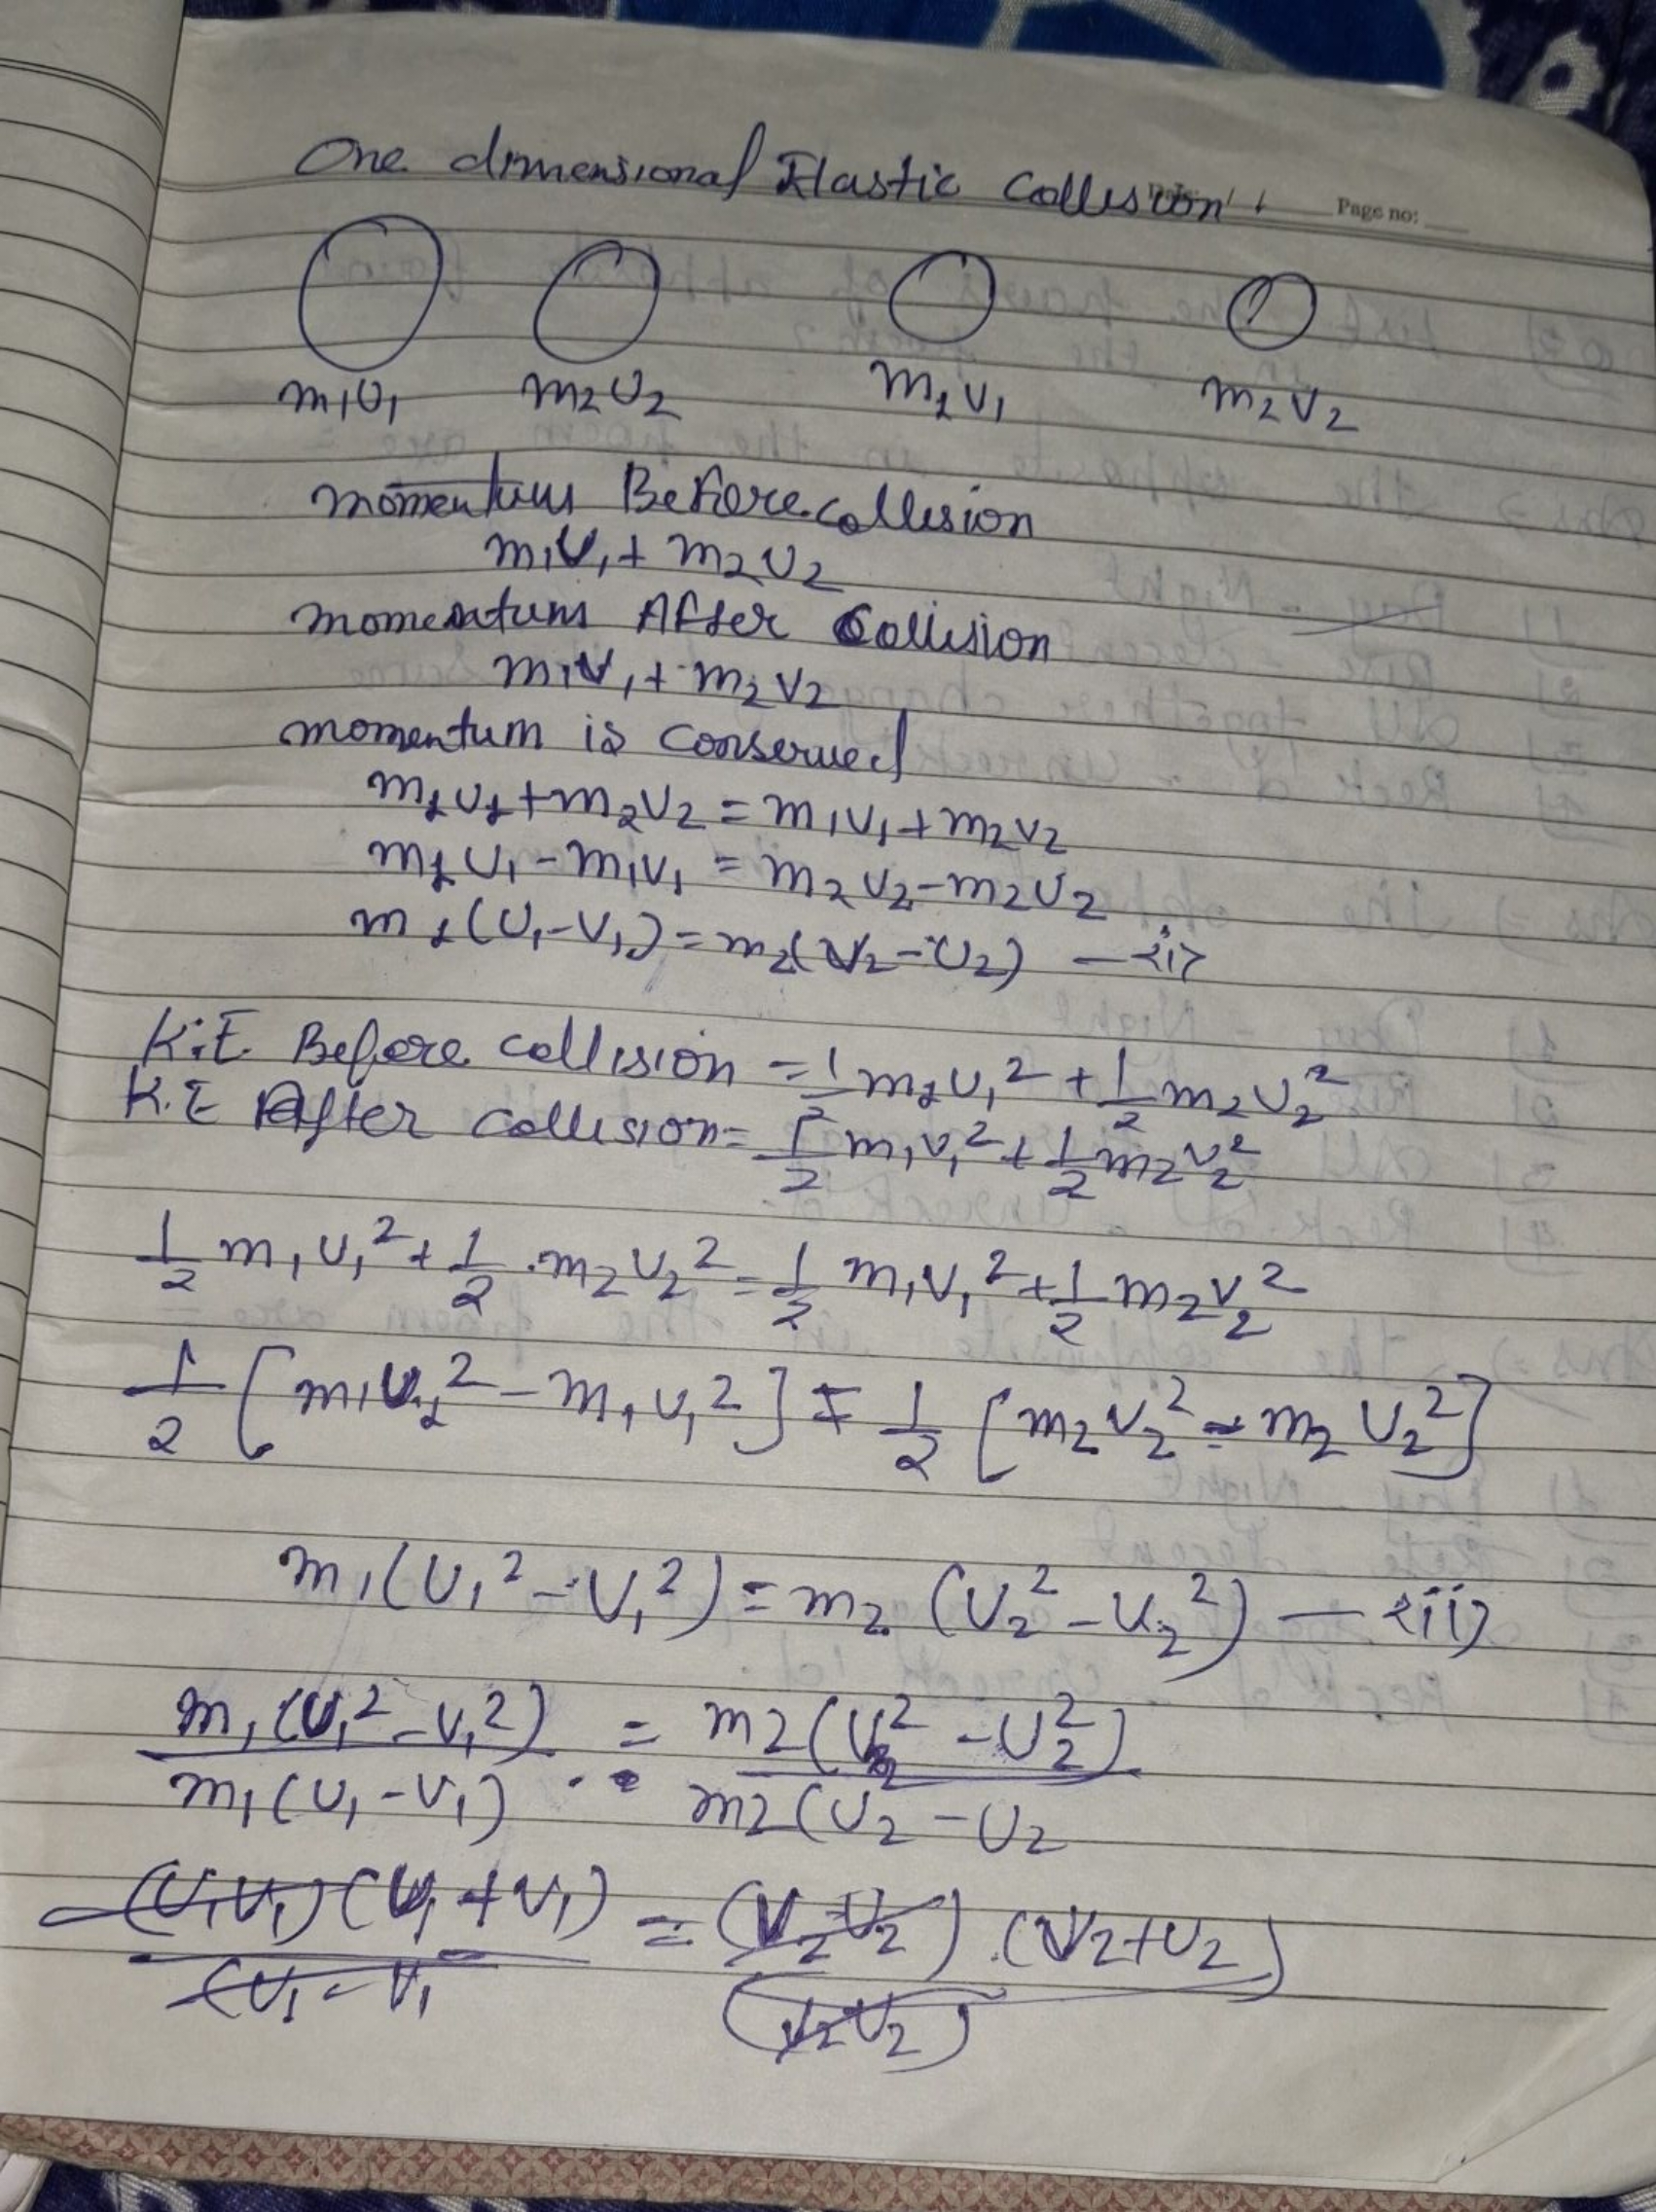 One dimensional Elastic Collision
Page no:
m1U1 m2U2 m1V1 m2V2
momentum Before collision
m1U1 + m2U2
momentum After Collision
m1V1 + m2V2
momentum is conserved
m1U1 + m2U2 = m1V1 + m2V2
m1U1 - m1V1 = m2V2 - m2U2
m1(U1 - V1) = m2(V2 - U2) —<i>
K.E. Before collision = 1/2 m1U1² + 1/2 m2U2²
K.E After collision = 1/2 m1V1² + 1/2 m2V2²
1/2 m1U1² + 1/2 m2U2² = 1/2 m1V1² + 1/2 m2V2²
1/2 [m1U1² - m1V1²] = 1/2 [m2V2² - m2U2²]
m1(U1² - V1²) = m2(V2² - U2²) —<ii>
m1(U1² - V1²) = m2(V2² - U2²)
m1(U1 - V1) m2(V2 - U2
(U1 V1)(U1 + V1) = (V2 - U2).(V2 + U2)
(U1 - V1 (V2 U2)